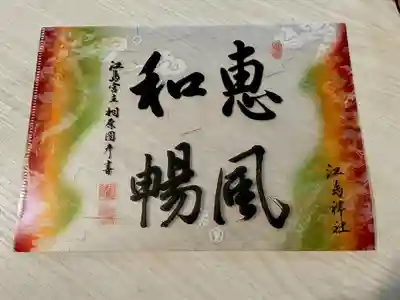 惠風
和暢
江島神社
江島宮主 相原圀彦書